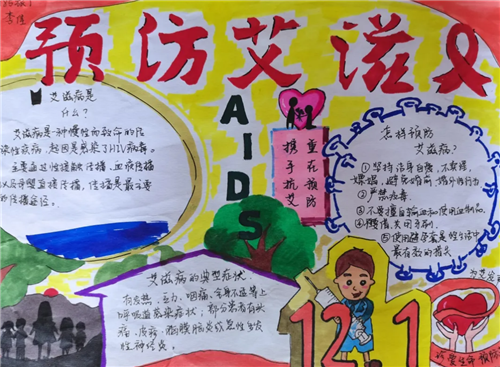 李佳
预防艾滋
AIDS
艾滋病是
什么？
艾滋病是一种慢性而致命的传
染性疾病，起因是感染了HIV病毒。
主要通过性接触传播、血液传播
以及母婴垂直传播，传播是最主要
的传播途径。
重在预防
携手抗艾
怎样预防
艾滋病？
①坚持洁身自爱，不卖淫、
嫖娼，避免婚前、婚外性行为
②严禁吸毒。
③不要擅自输血和使用血制品。
④
⑤使用避孕套是性生活中
最有效的措施
艾滋病的典型症状
有发热、乏力、咽痛、全身不适等上
呼吸道感染症状，部分患者有头
痛、皮疹、脑膜脑炎或急性多发
性神经炎。
12 1